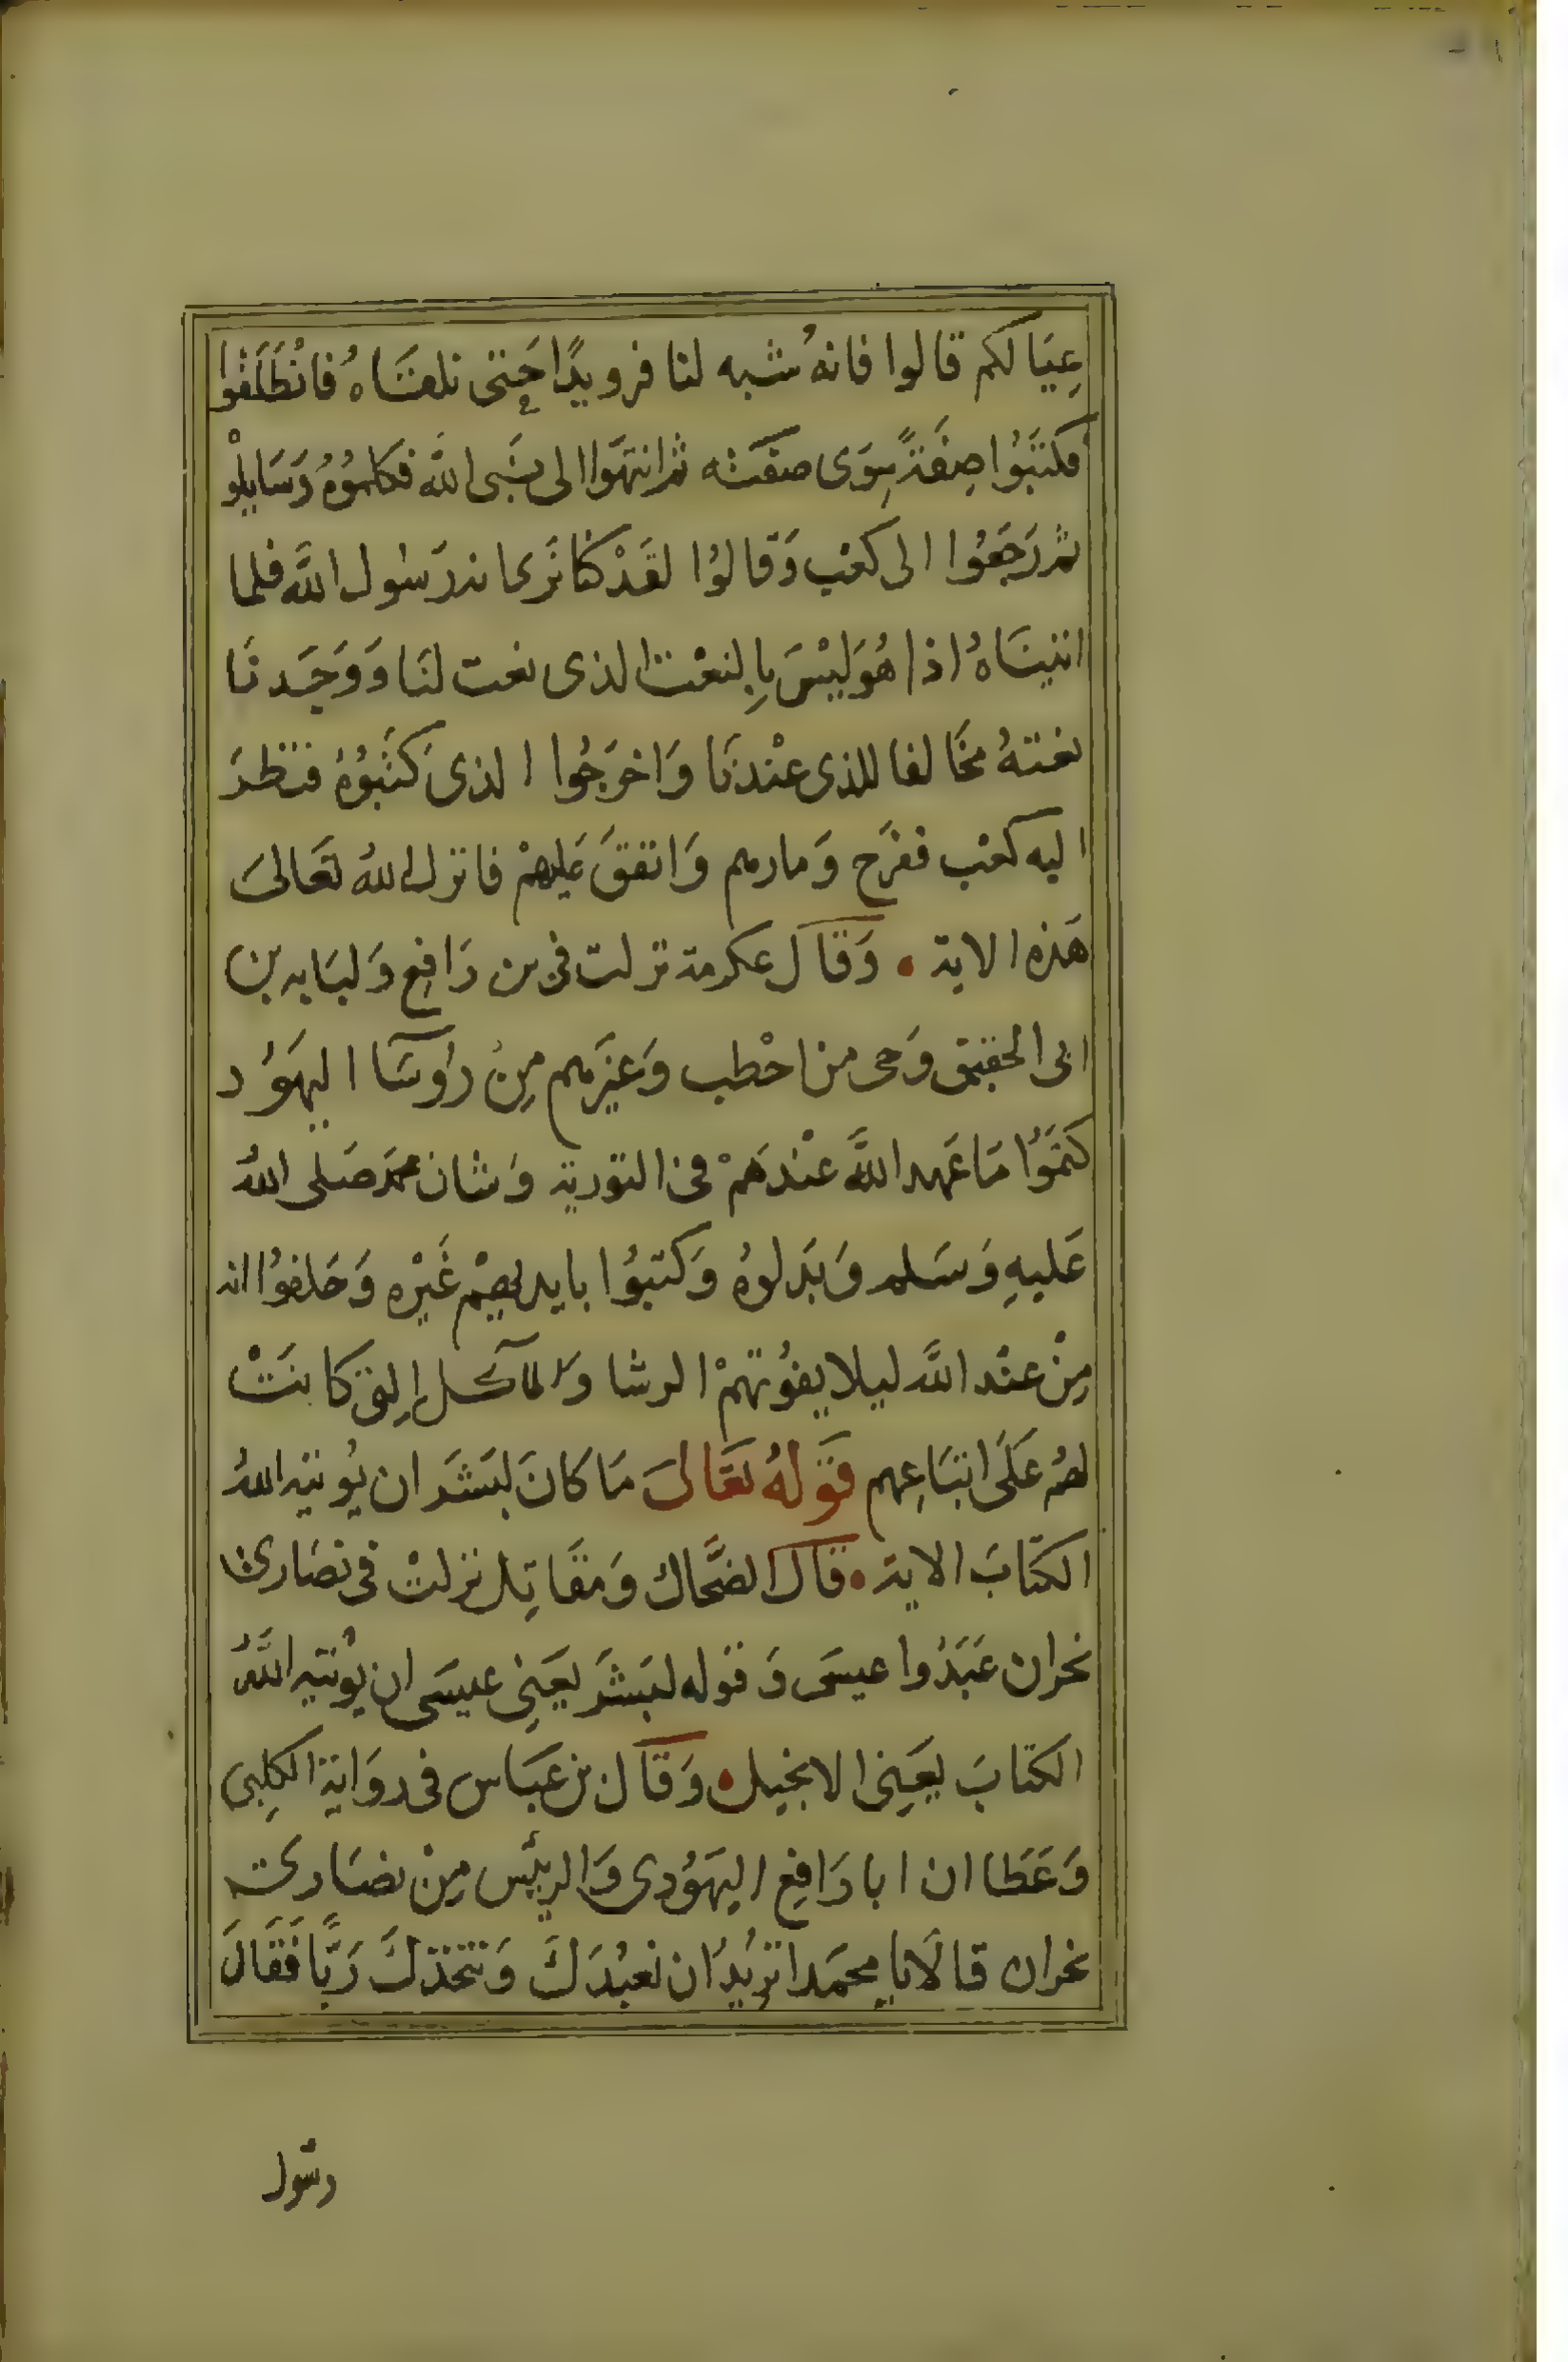 عِيَالكم قالوا فانهُ شبه لنا فرويدًا حَتى نلقَاهُ فانْطَلقوا
فكتبَوُا صِفَةً سِوَى صفتَه ثم انتهَوا الى نبَى اللَّه فكلموُهُ وَسَايلوْ
ثم رَجَعُوا الى كعْب وَقالوُا لقَدْ كنا نَرى انه رَسُول اللَّه فلما
اتينَاهُ اذا هُوَ ليْسَ بِالنعْت الذى نعت لنَا وَوَجَدنَا
نعتهُ مخَالفا للذى عنْدنَا وَاخرَجُوا الذى كَتَبوُهُ فنظرَ
اليه كعْب ففرَح وَمارهم وَانفقَ عَليهمْ فانزل اللهُ تعَالىَ
هَذه الاية • وَقاَل عكرمة نزلت فى بن رَافِع وَلبَابه بن
ابى الحقيق وَحى من احْطب وَغيَرهم مِنْ روُسَآ اليهَوُد
كتمَوُا مَا عَهد اللَّه عنْدهَمْ فى التورية وَشان محمَد صَلى اللهُ
عَليهِ وَسَلم وَبَدلوُه وَكتبوُا بايديهِمْ غَيْره وَحَلفوُا انه
مِنْ عنْد اللَّه ليلا يفوُتهمْ الرشا وَالمآكل التِى كَانتْ
لهمُ عَلَى اتبَاعِهم قَوَلهُ تعَالىَ مَا كانَ لبَشَر ان يُوتيه اللهُ
الكتَابَ الاية • قاَل الضحَّاك وَمقَاتِل نزلتْ فى نصَارى
نجران عَبَدُوا عيسَى وَقوله لبَشَر يعَنِى عيسَى ان يوُتيه اللَّهُ
الكتَابَ يعَنِى الانجيل • وَقاَل بن عَبَاس فى روَاية الكلِبى
وَعَطا ان ابا رَافِع اليهَوُدى وَالريئس مِنْ نصَارى
نجران قالاَ يا محمَد اتريُدُ ان نعبُدَكَ وَنتخذكَ رَبًّا فَقَالَ
رسَول